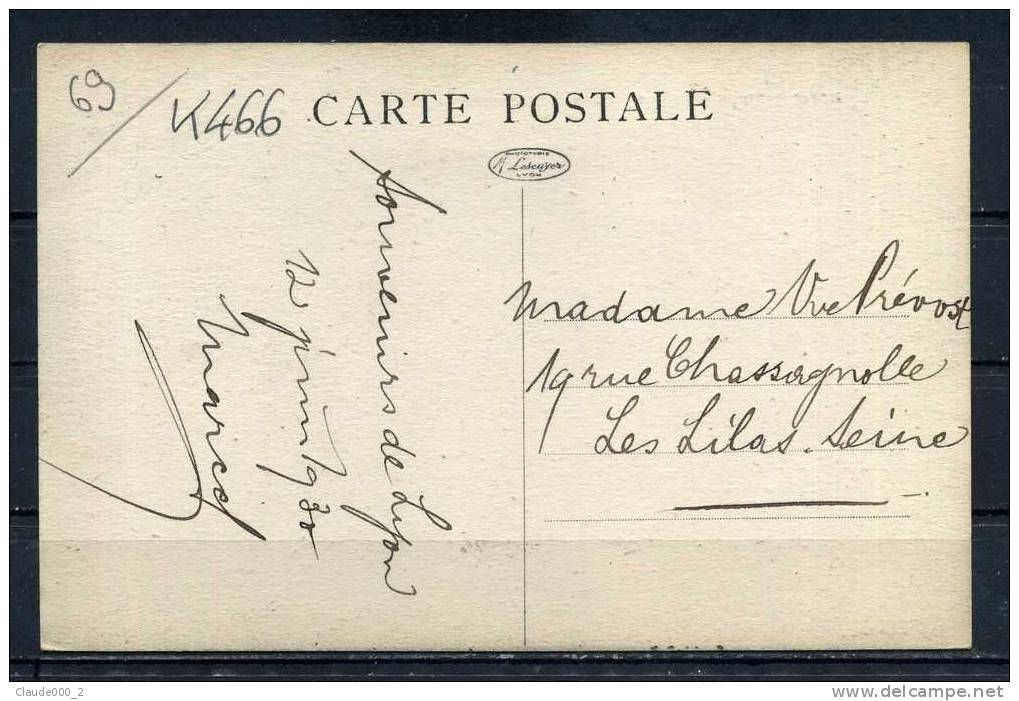 69/
K466
CARTE POSTALE
PHOTOTYPIE
M Lescuyer
LYON
Souvenirs de Lyon
12 juin 1930
Marcel
Madame Vve Prévost
19 rue Chassagnolle
Les Lilas. Seine
Claude000_2
http://www.delcampe.net